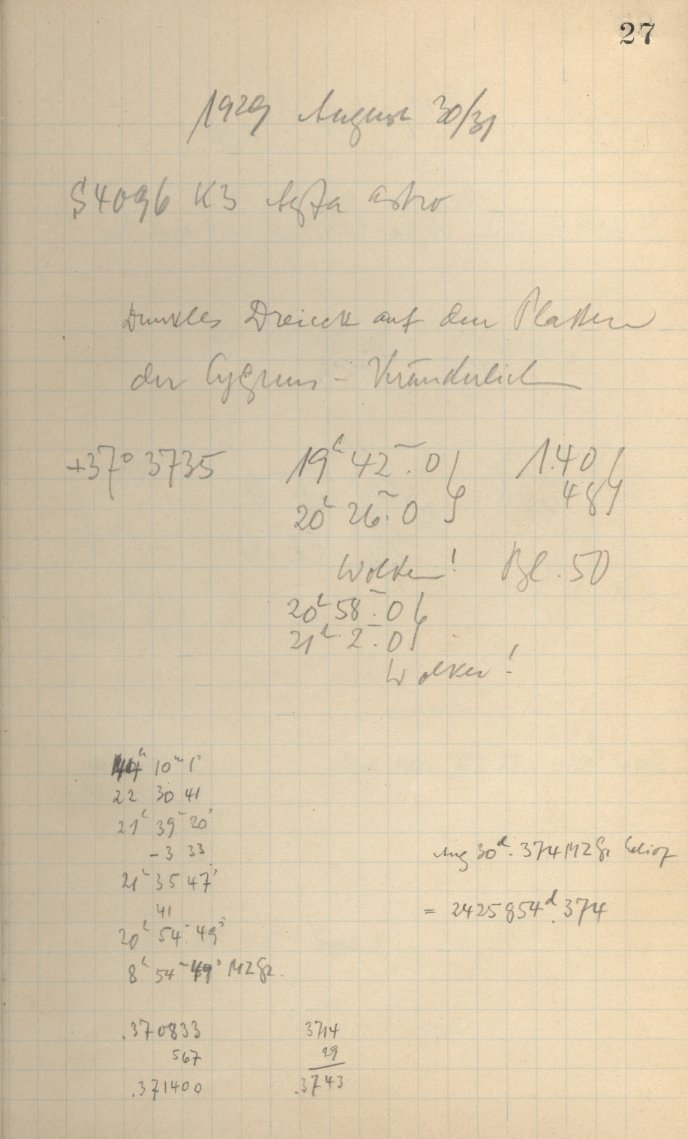 27
1929 August 30/31
S4096 K3 Agfa astro
Dunkles Dreieck auf den Platten
der Cygnus - Veränderlichen
+37° 3735 19h 42m.0 1.40
20h 26m.0 48
Wolken! Bl. 50
20h 58m.0
21h 2m.0
Wolken!
10m 1s
22 30 41
21h 39m 20s
-3 33
21h 35 47s
41
20h 54m 49s
8h 54m 49s MZGr.
Aug 30d.374 MZGr helioz
= 2425854d.374
.370833 3714
567 29
.371400 .3743